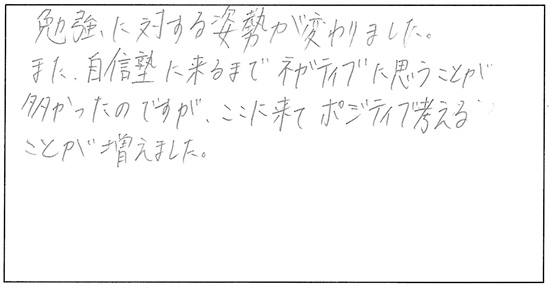 勉強に対する姿勢が変わりました。
また、自信塾に来るまでネガティブに思うことが
多かったのですが、ここに来てポジティブ考える
ことが増えました。